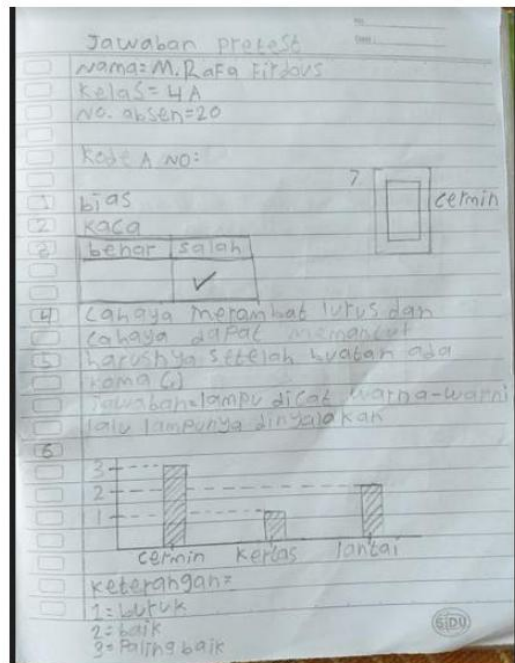 No.
Date:
Jawaban pretest
Nama= M. Rafa Firdaus
Kelas= 4 A
No. absen=20
Kode A NO:
1 bias
2 kaca
3 benar salah
✓
7 cermin
4 cahaya merambat lurus dan
cahaya dapat memantul
5 harusnya setelah buatan ada
koma (,)
Jawaban=lampu dicat warna-warni
lalu lampunya dinyalakan
6
3
2
1
cermin kertas lantai
keterangan=
1= buruk
2= baik
3= Paling baik
SIDU